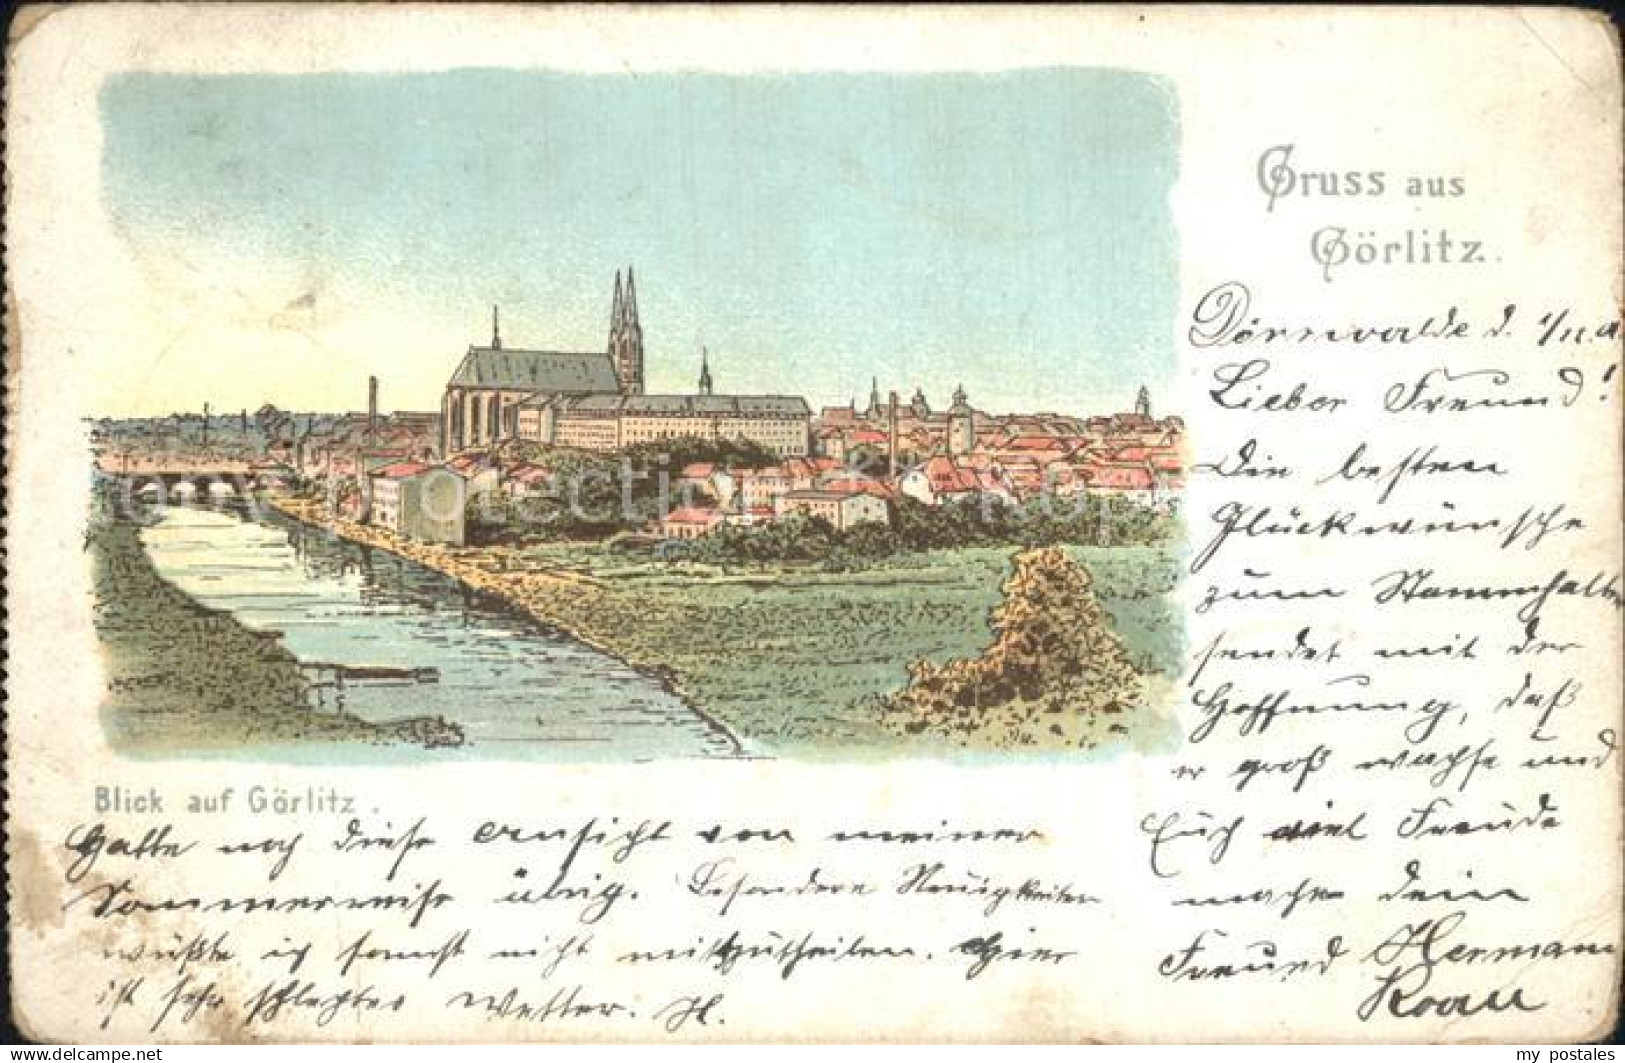 Gruss aus
Görlitz.
Dörnwalde d. 1/11.
Lieber Freund!
Die besten
Glückwünsche
zum Stammhalter
sendet mit der
Hoffnung, daß
er groß wachse und
Euch viel Freude
mache dein
Freund Hermann
Blick auf Görlitz.
Hatte noch diese Ansicht von meiner
Sommerreise übrig. Besondere Neuigkeiten
wüßte ich sonst nicht mitzutheilen. Hier
ist sehr schlechtes Wetter. H.
www.delcampe.net
my_postales